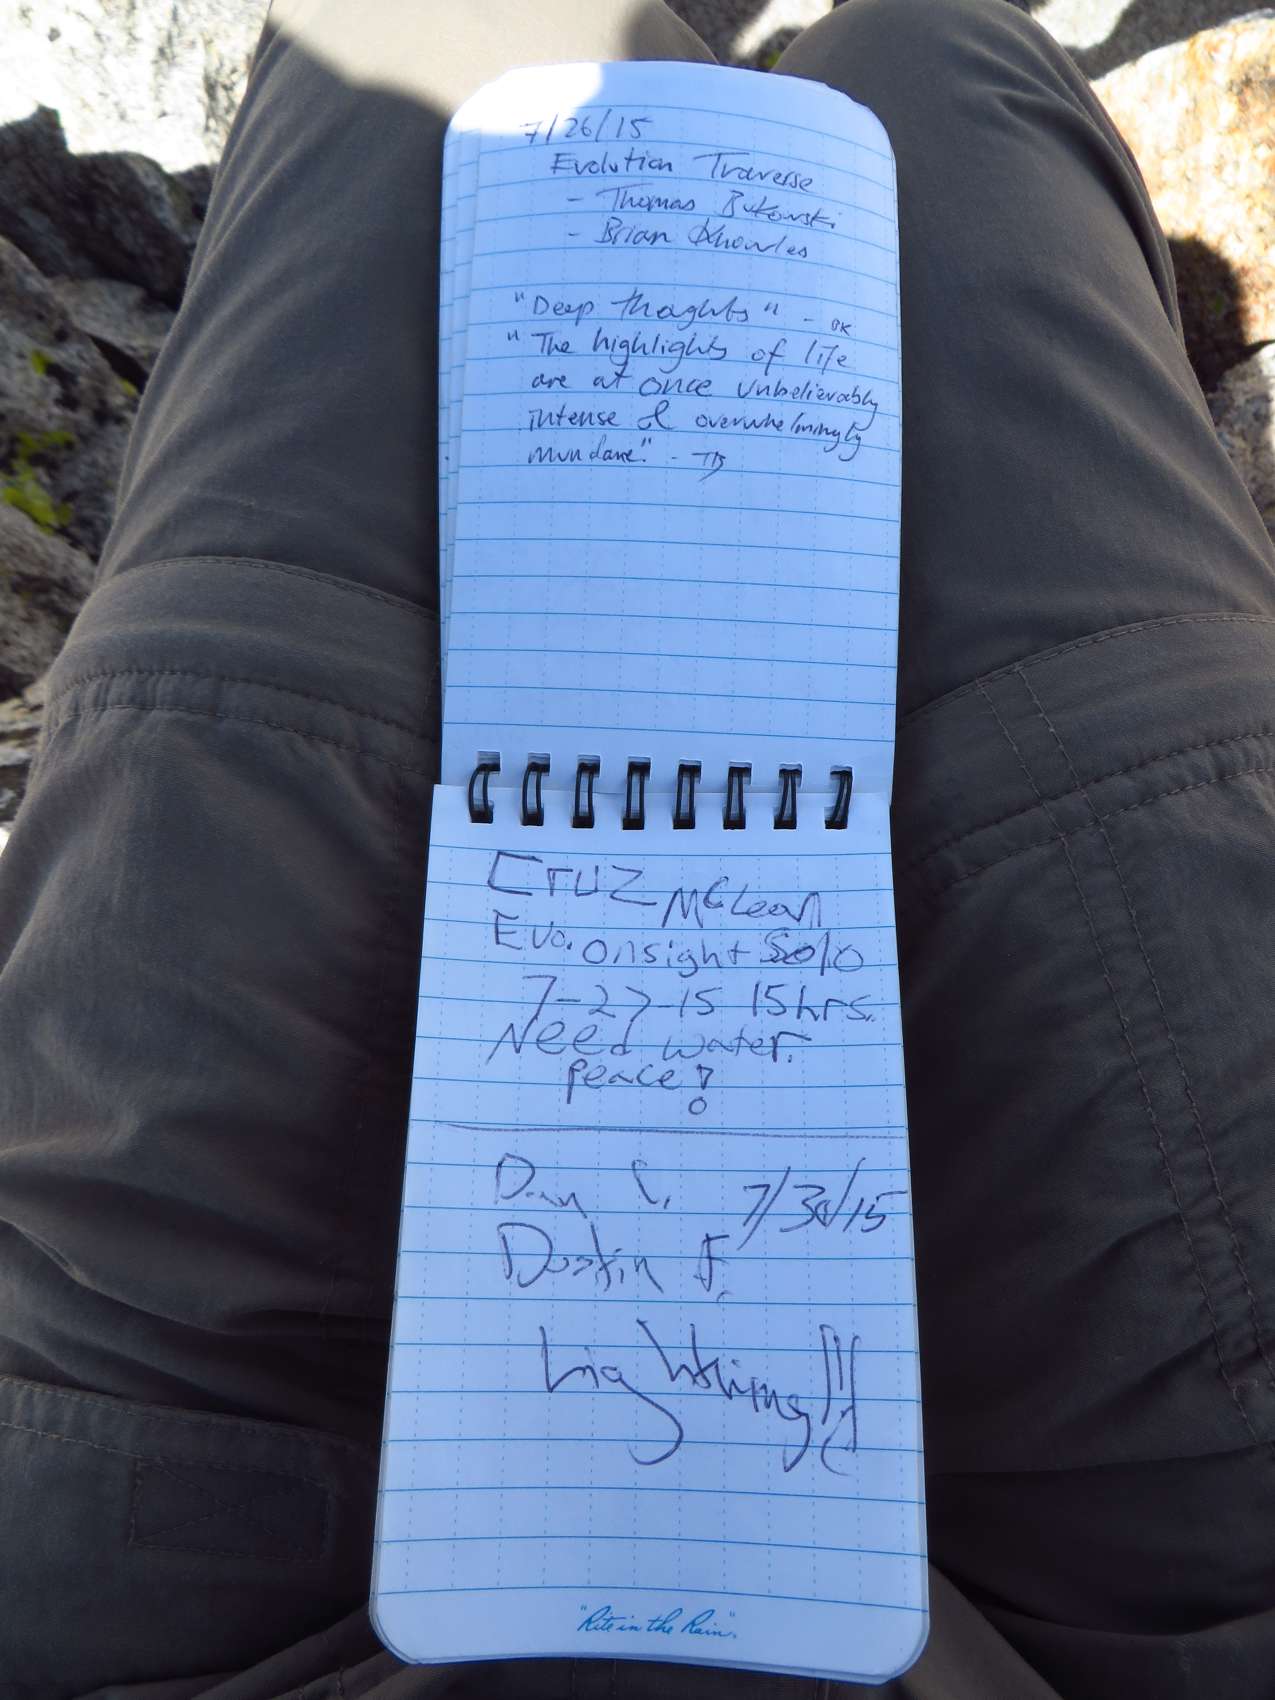 7/26/15
Evolution Traverse
- Thomas Bukowski
- Brian Knowles
"Deep thoghts" - BK
"The highlights of life
are at once unbelievably
intense & overwhelmingly
mundane." - TB
Cruz McLean
Evo. onsight Solo
7-27-15 15hrs.
Need water.
Peace!
Dan C. 7/30/15
Dustin F.
Lightning!!!
"Rite in the Rain".